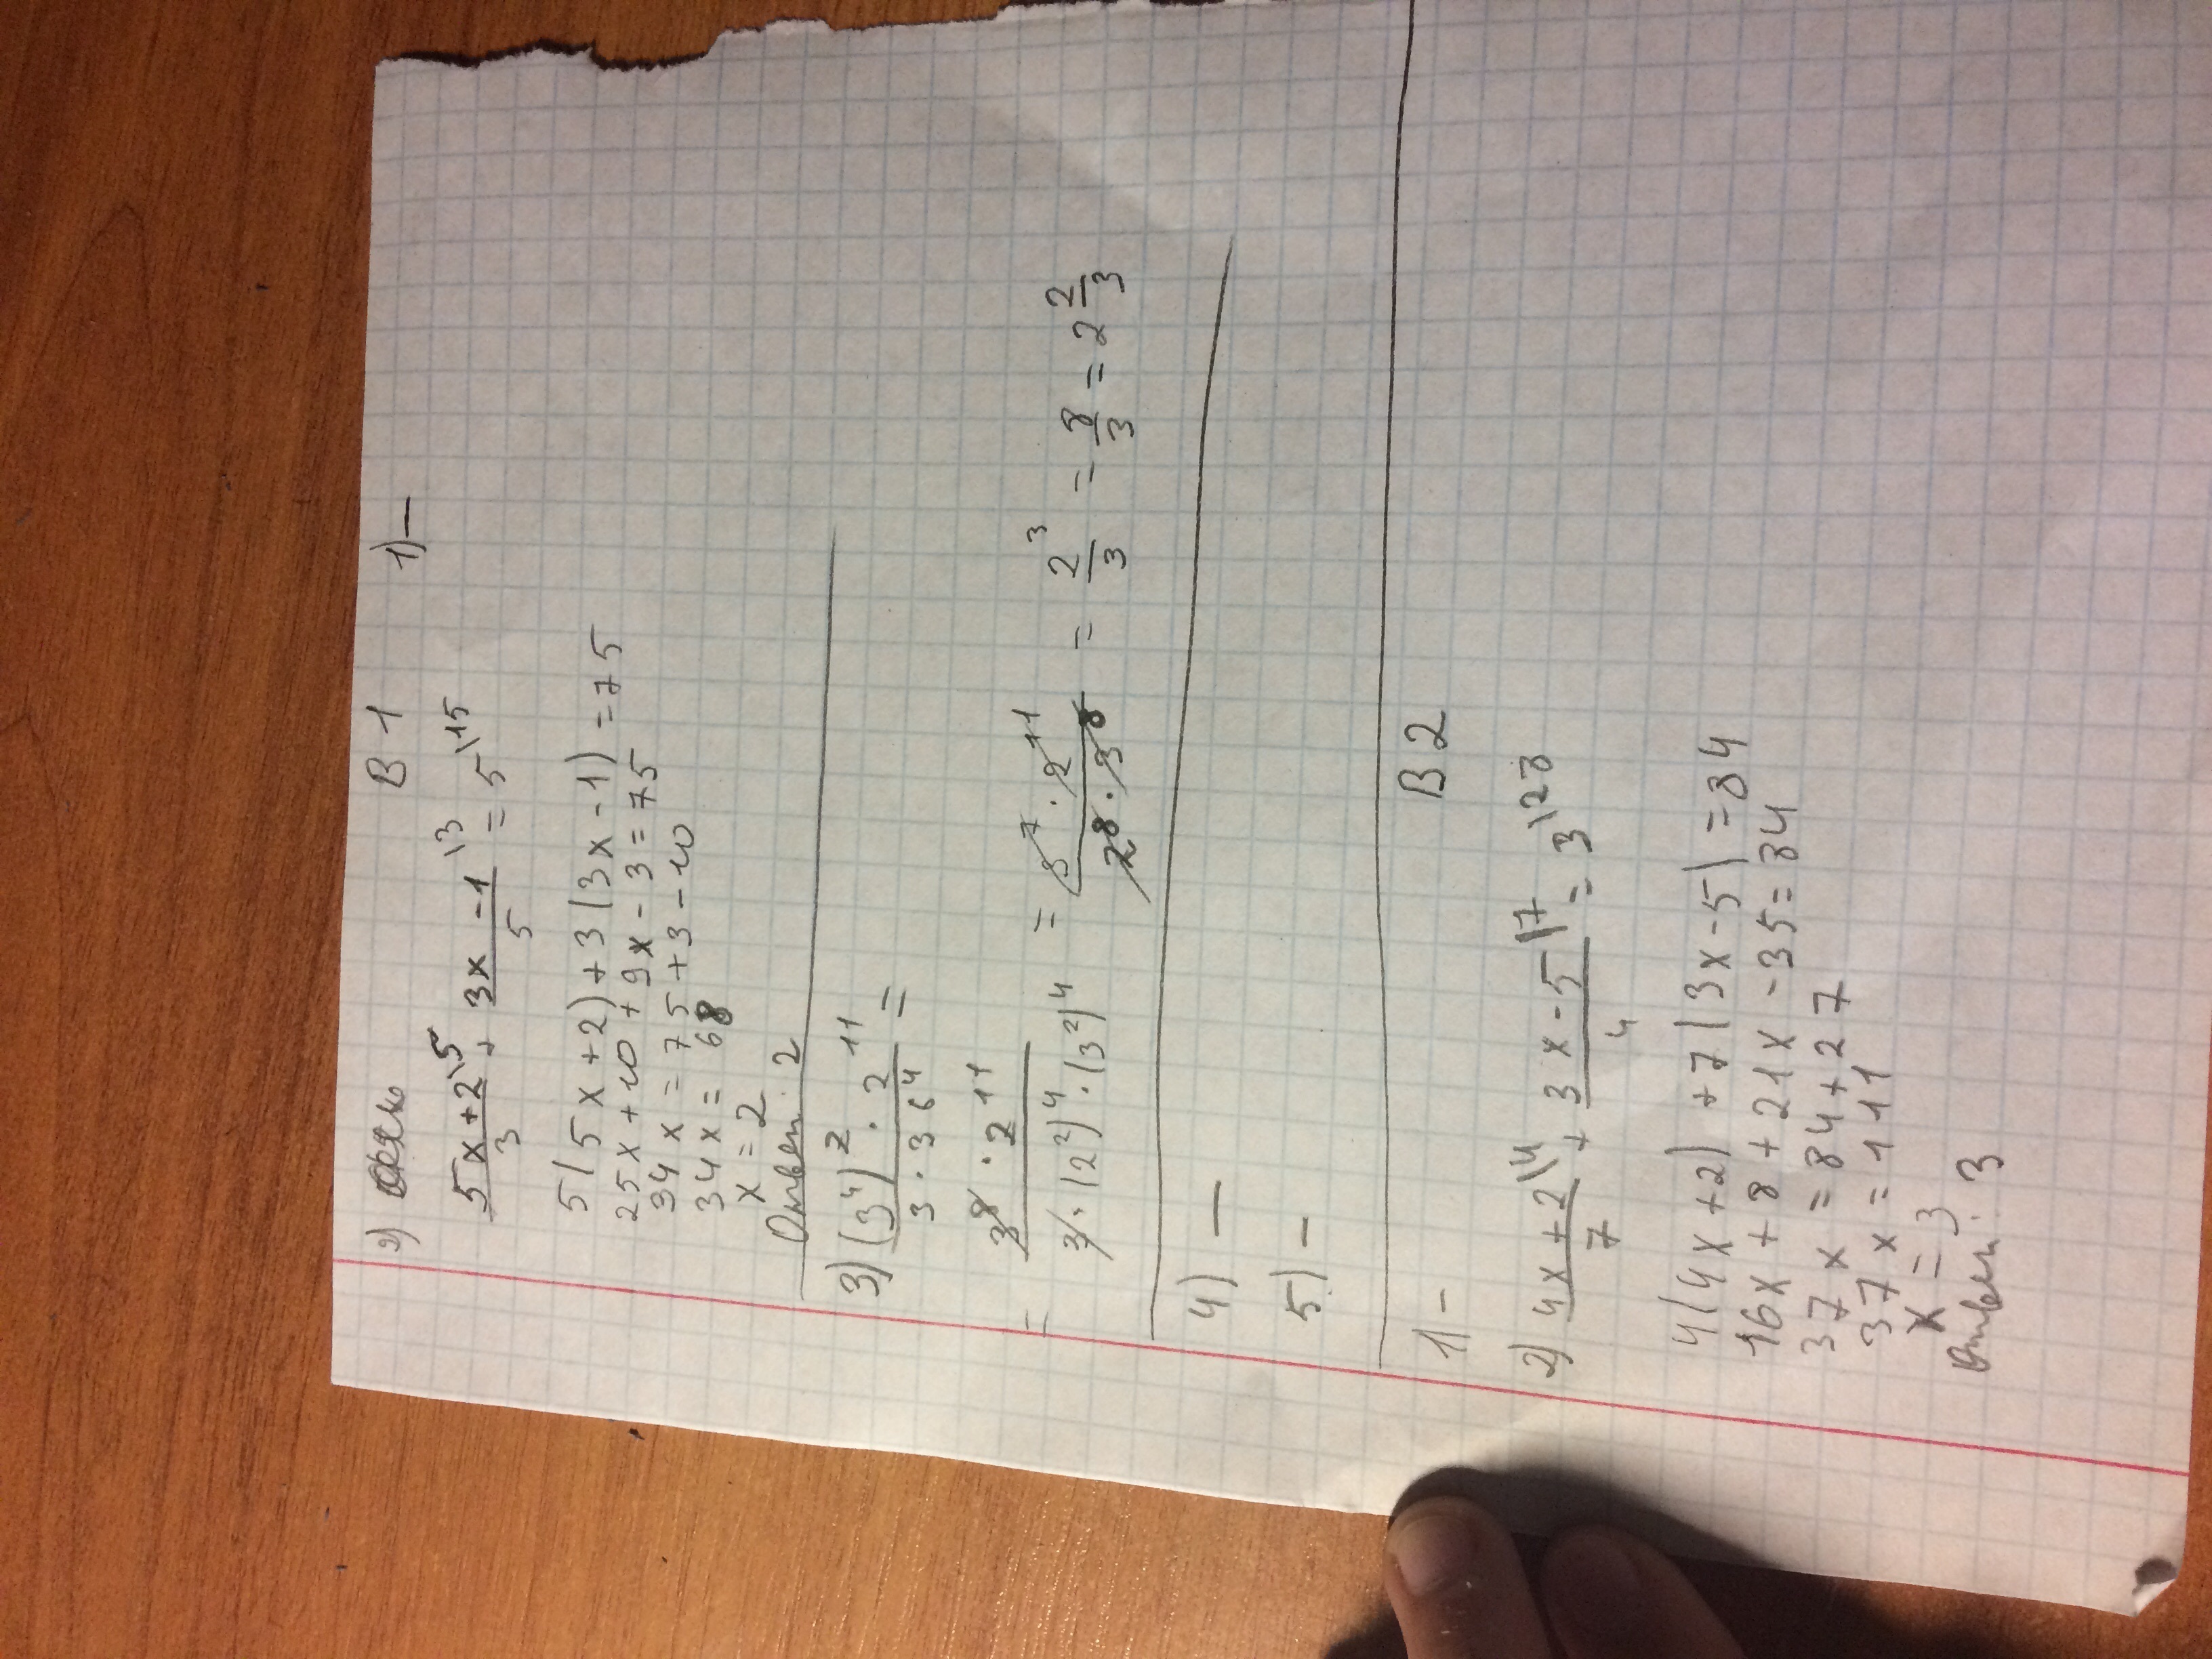 В 1
1) —
2)
(5x+2)/3 \5 + (3x-1)/5 \3 = 5 \15
5(5x+2)+3(3x-1)=75
25x+10+9x-3=75
34x=75+3-10
34x=68
x=2
Ответ: 2
3) ((3⁴)² · 2¹¹)/(3 · 36⁴) =
= (3⁸ · 2¹¹)/(3 · (2²)⁴ · (3²)⁴) = (3⁷ · 2¹¹)/(2⁸ · 3⁸) = 2³/3 = 8/3 = 2 2/3
4) —
5) —
В 2
1) -
2) (4x+2)/7 \4 + (3x-5)/4 \7 = 3 \28
4(4x+2)+7(3x-5)=84
16x+8+21x-35=84
37x=84+27
37x=111
x=3
Ответ: 3